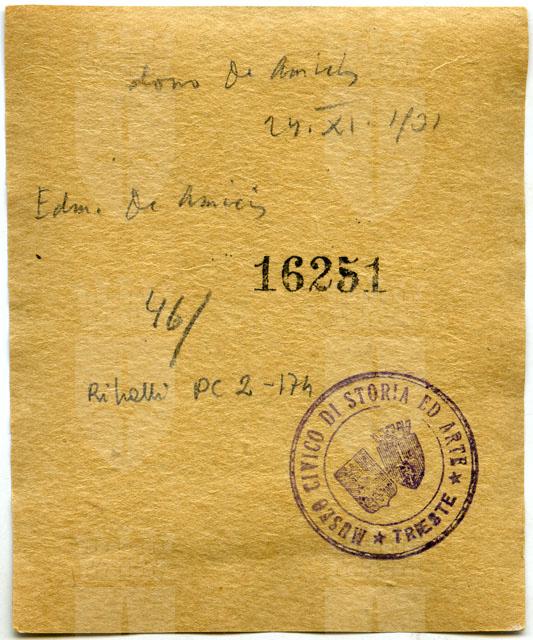 dono De Amicis
24. XI. 1921
Edm. De Amicis
16251
46/
PC 2-174
MUSEO CIVICO DI STORIA ED ARTE ★ TRIESTE ★